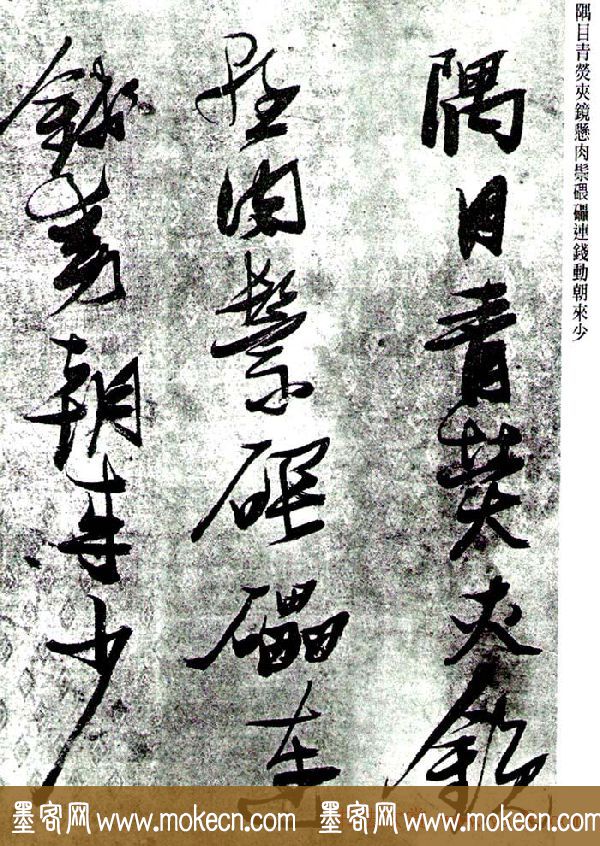 隅目青熒夾鏡懸肉鬃碨礧連錢動朝來少
隅目青熒夾鏡
懸肉鬃碨礧連
錢動朝來少
墨客网 www.mokecn.com 墨客网 www.mokecn.com